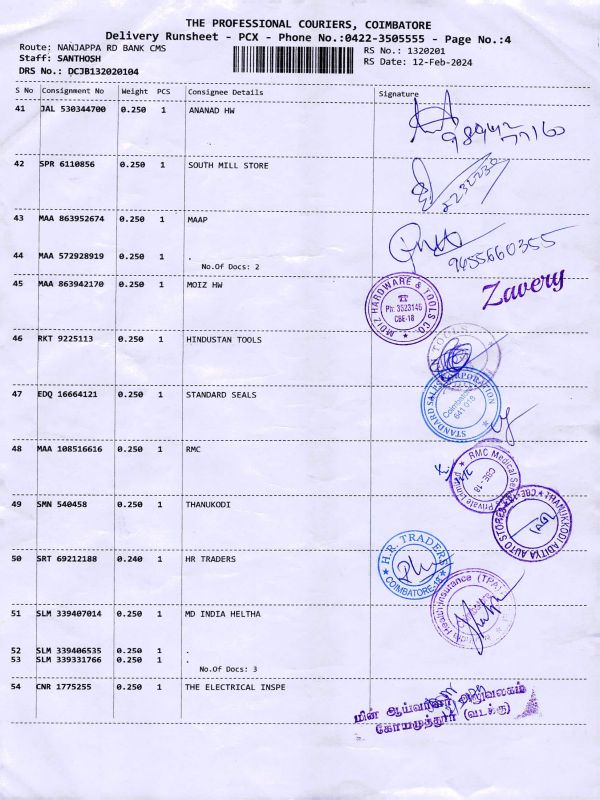 THE PROFESSIONAL COURIERS, COIMBATORE
Delivery Runsheet - PCX - Phone No.:0422-3505555 - Page No.:4
Route: NANJAPPA RD BANK CMS
RS No.: 1320201
Staff: SANTHOSH
RS Date: 12-Feb-2024
DRS No.: DCJB132020104
S No Consignment No Weight PCS Consignee Details Signature
41 JAL 530344700 0.250 1 ANANAD HW
42 SPR 6110856 0.250 1 SOUTH MILL STORE
2232230
43 MAA 863952674 0.250 1 MAAP
9655660355
44 MAA 572928919 0.250 1 .
No.Of Docs: 2
45 MAA 863942170 0.250 1 MOIZ HW
MOIZ HARDWARE & TOOLS CO.
Ph: 3523146
CBE-18
Zavery
46 RKT 9225113 0.250 1 HINDUSTAN TOOLS
TOOLS
47 EDQ 16664121 0.250 1 STANDARD SEALS
STANDARD SALES CORPORATION
Coimbatore
641 018
48 MAA 108516616 0.250 1 RMC
RMC Medical Private Limited
CBE-18
49 SMN 540458 0.250 1 THANUKODI
THANUKKODI ADITYA AUTO STORES CBE-18
50 SRT 69212188 0.240 1 HR TRADERS
H.R. TRADERS
COIMBATORE-18
51 SLM 339407014 0.250 1 MD INDIA HELTHA
Health Insurance (TPA)
52 SLM 339406535 0.250 1 .
53 SLM 339331766 0.250 1 .
No.Of Docs: 3
54 CNR 1775255 0.250 1 THE ELECTRICAL INSPE
மின் ஆய்வாளர் அலுவலகம்
கோயமுத்தூர் (வடக்கு)